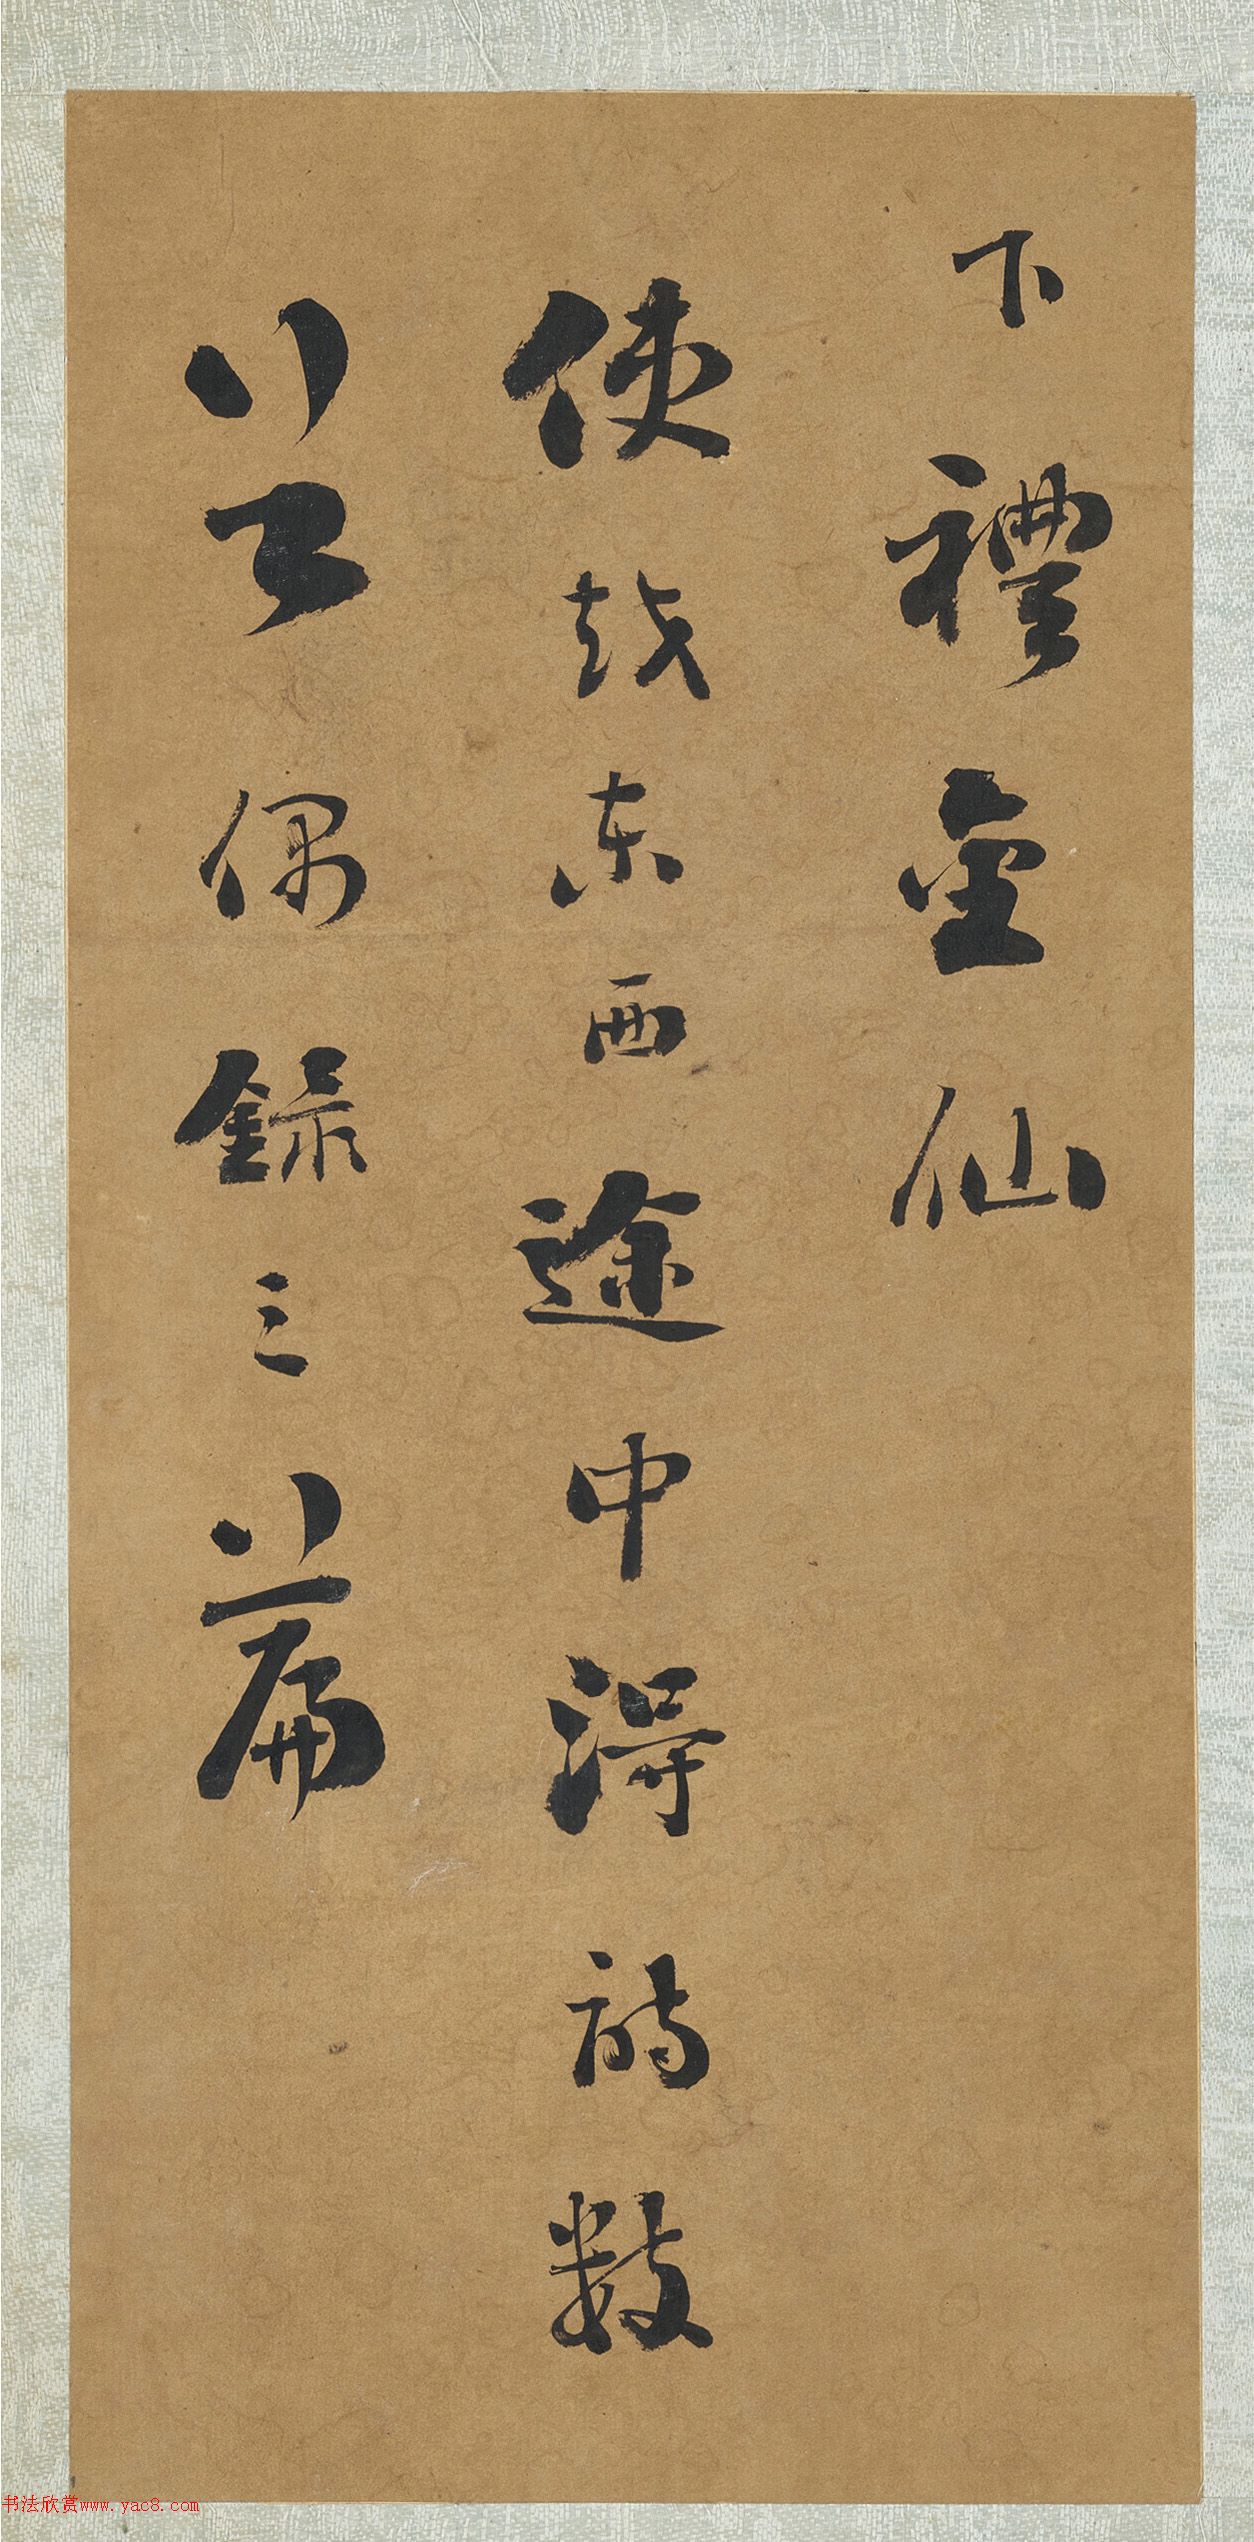 下禮金仙
使越東西途中得詩數
首偶錄三篇
书法欣赏www.yac8.com